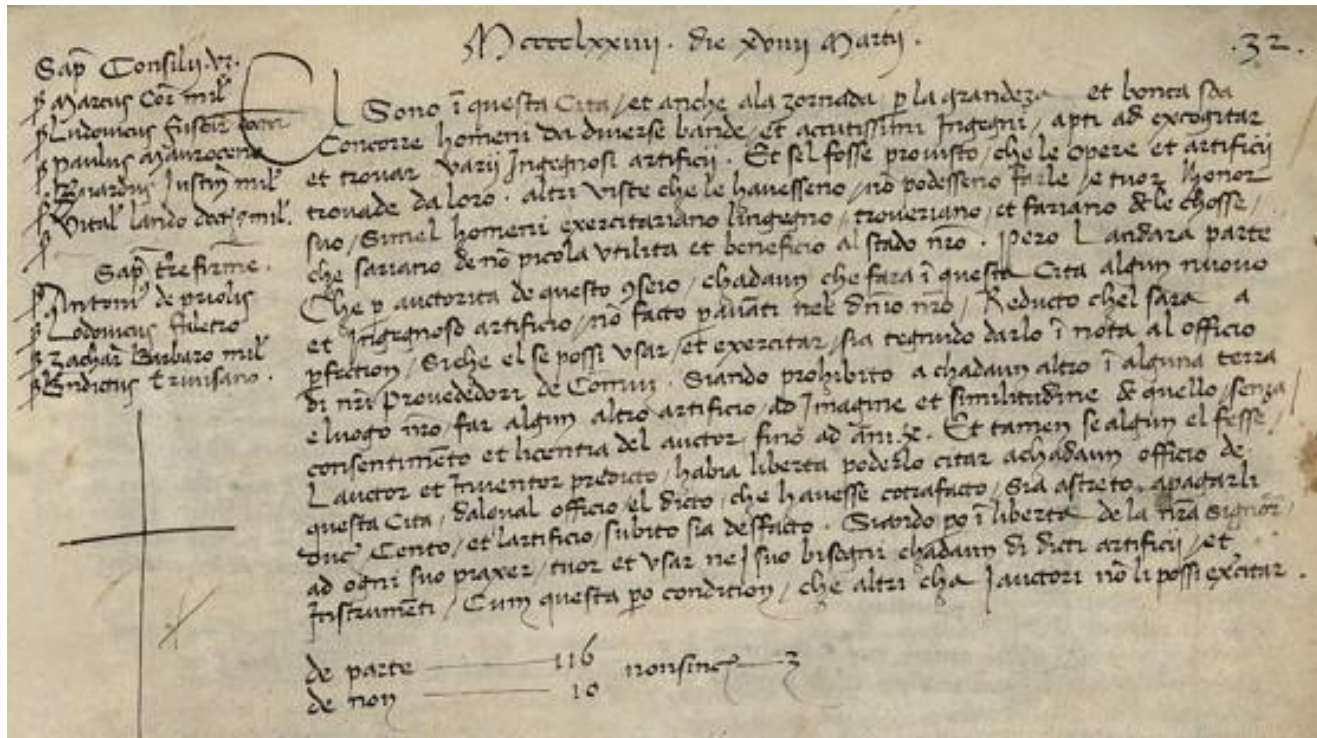 Mcccclxxiiii. die xviiii Martii.
.32.
Sap Consilij
Marcus Cor mil
Ludovicus fuscar
paulus Mauroceno
Justin mil
Vital lando doct mil.
Sap tre firme.
Antoni de priolis
Lodovicus faletro
Zachar Barbaro mil
trivisano.
El Sono i questa Cita, et anche ala zornada p la grandeza et bonta sda
Concorre homeni da diverse bande, et accutissimi Ingegni, apti ad excogitar
et trovar varii Ingegnosi artificii. Et sel fosse provisto, che le opere et artificii
trovade da loro. altri viste che le havesseno, no podesseno farle, e tuor l honor
suo, Simel homeni exercitariano lingegno, troveriano, et fariano de le chosse,
che sariano de no picola utilita et beneficio al stado nro. Pero Landara parte
Che p auctorita de questo 9seio, chadaun che fara i questa Cita algun nuovo
et Ingegnoso artificio, no facto p avati nel dnio nro, Reducto chel sara a
pfection, Siche el se possi usar, et exercitar, sia tegnudo darlo i nota al officio
di nri provededori de Comun. Siando prohibito a chadaun altro i alguna terra
e luogo nro, far algun altro artificio, ad Imagine et similitudine de quello, senza
consentimeto et licentia del auctor, fino ad ani x. Et tamen se algun el fesse,
Lauctor et Inventor predicto, habia liberta poderlo citar a chadaun officio de
questa Cita, dal qual officio el dicto, che havesse cotrafacto, Sia astreto, apagarli
duc Cento, et lartificio, subito sia desfacto. Siando po i liberta de la nra Signor,
ad ogni suo piaxer, tuor et usar ne I suo bisogni chadaun di dicti artificii, et
Instrumeti, Cum questa po condition, che altri cha I auctori no li possi exercitar.
de parte 116 nonsinc 3
de non 10